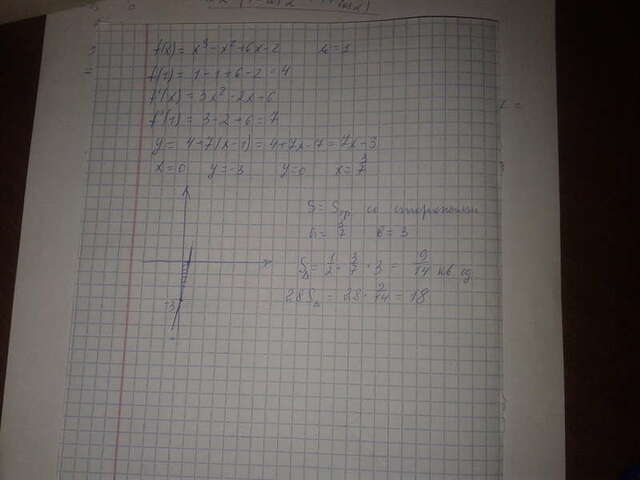 f(x) = x³ - x² + 6x - 2    x₀ = 1
f(1) = 1 - 1 + 6 - 2 = 4
f'(x) = 3x² - 2x + 6
f'(1) = 3 - 2 + 6 = 7
y = 4 + 7(x - 1) = 4 + 7x - 7 = 7x - 3
x = 0    y = -3    y = 0    x = 3/7
S = Sтр. со сторонами
a = 3/7    b = 3
S△ = 1/2 · 3/7 · 3 = 9/14 кв. ед
28S△ = 28 · 9/14 = 18
-3